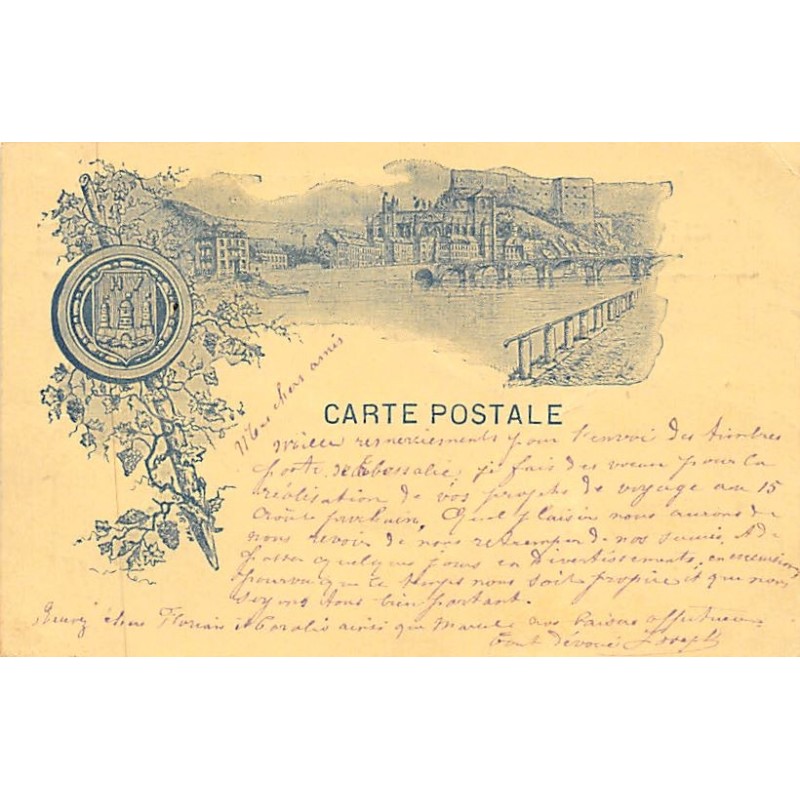 H V
CARTE POSTALE
Mes chers amis
Mille remerciements pour l'envoi des timbres
poste de Thessalie, je fais des vœux pour la
réalisation de vos projets de voyage au 15
Août prochain, Quel plaisir nous aurons de
nous revoir de nous retremper de nos
passer quelques jours en divertissements, en excursions
pourvu que le temps nous soit propice et que nous
soyons tous bien portant.
Recevez chers Florian et Coralie ainsi que Marcel nos baisers affectueux
tout dévoué Joseph